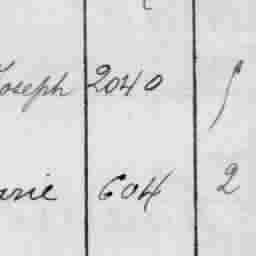 Joseph 2040 1
arie 604 2